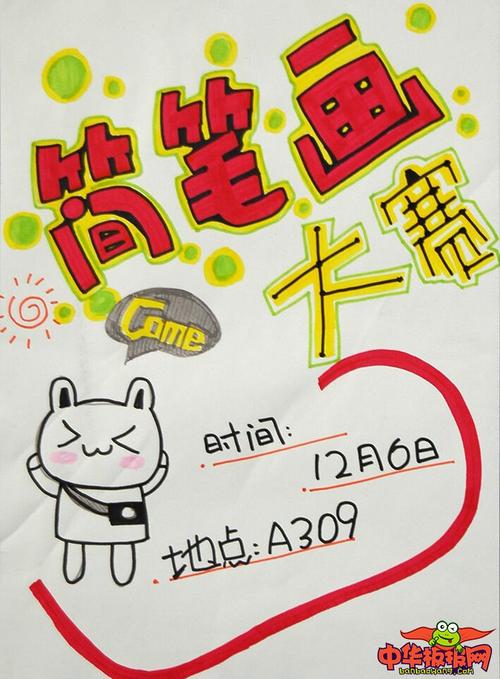 简笔画
大赛
Come
时间:
12月6日
地点:A309
中华板报网
banbaowang.com